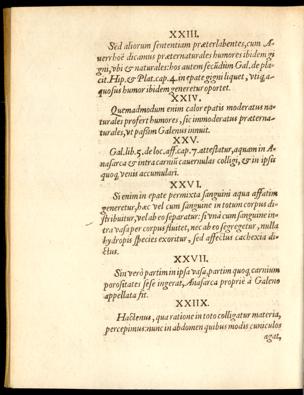 XXIII.
Sed aliorum sententiam præterlabentes, cum A-
verrhoë dicamus præternaturales humores ibidem gi
gni, vbi & naturales: hos autem secũdùm Gal. de pla-
cit. Hip. & Plat. cap. 4. in epate gigni liquet, vtiq; a-
quosus humor ibidem generetur oportet.
XXIV.
Quemadmodum enim calor epatis moderatus na-
turales profert humores, sic immoderatus præterna-
turales, vt passim Galenus innuit.
XXV.
Gal. lib. 5. de loc. aff. cap. 7. attestatur, aquam in A-
nasarca & intra carniũ cavernulas colligi, & in ipsis
quoq; venis accumulari.
XXVI.
Si enim in epate permixta sanguini aqua affatim
generetur, hæc vel cum sanguine in totum corpus di-
stribuitur, vel ab eo separatur: si vnà cum sanguine in-
tra vasa per corpus fluitet, nec ab eo segregetur, nulla
hydropis species exoritur, sed affectus cachexia di-
ctus.
XXVII.
Sin verò partim in ipsa vasa, partim quoq; carnium
porositates sese ingerat, Anasarca propriè à Galeno
appellata fit.
XXIIX.
Hactenus, qua ratione in toto colligatur materia,
percepimus: nunc in abdomen quibus modis cuniculos
agat,